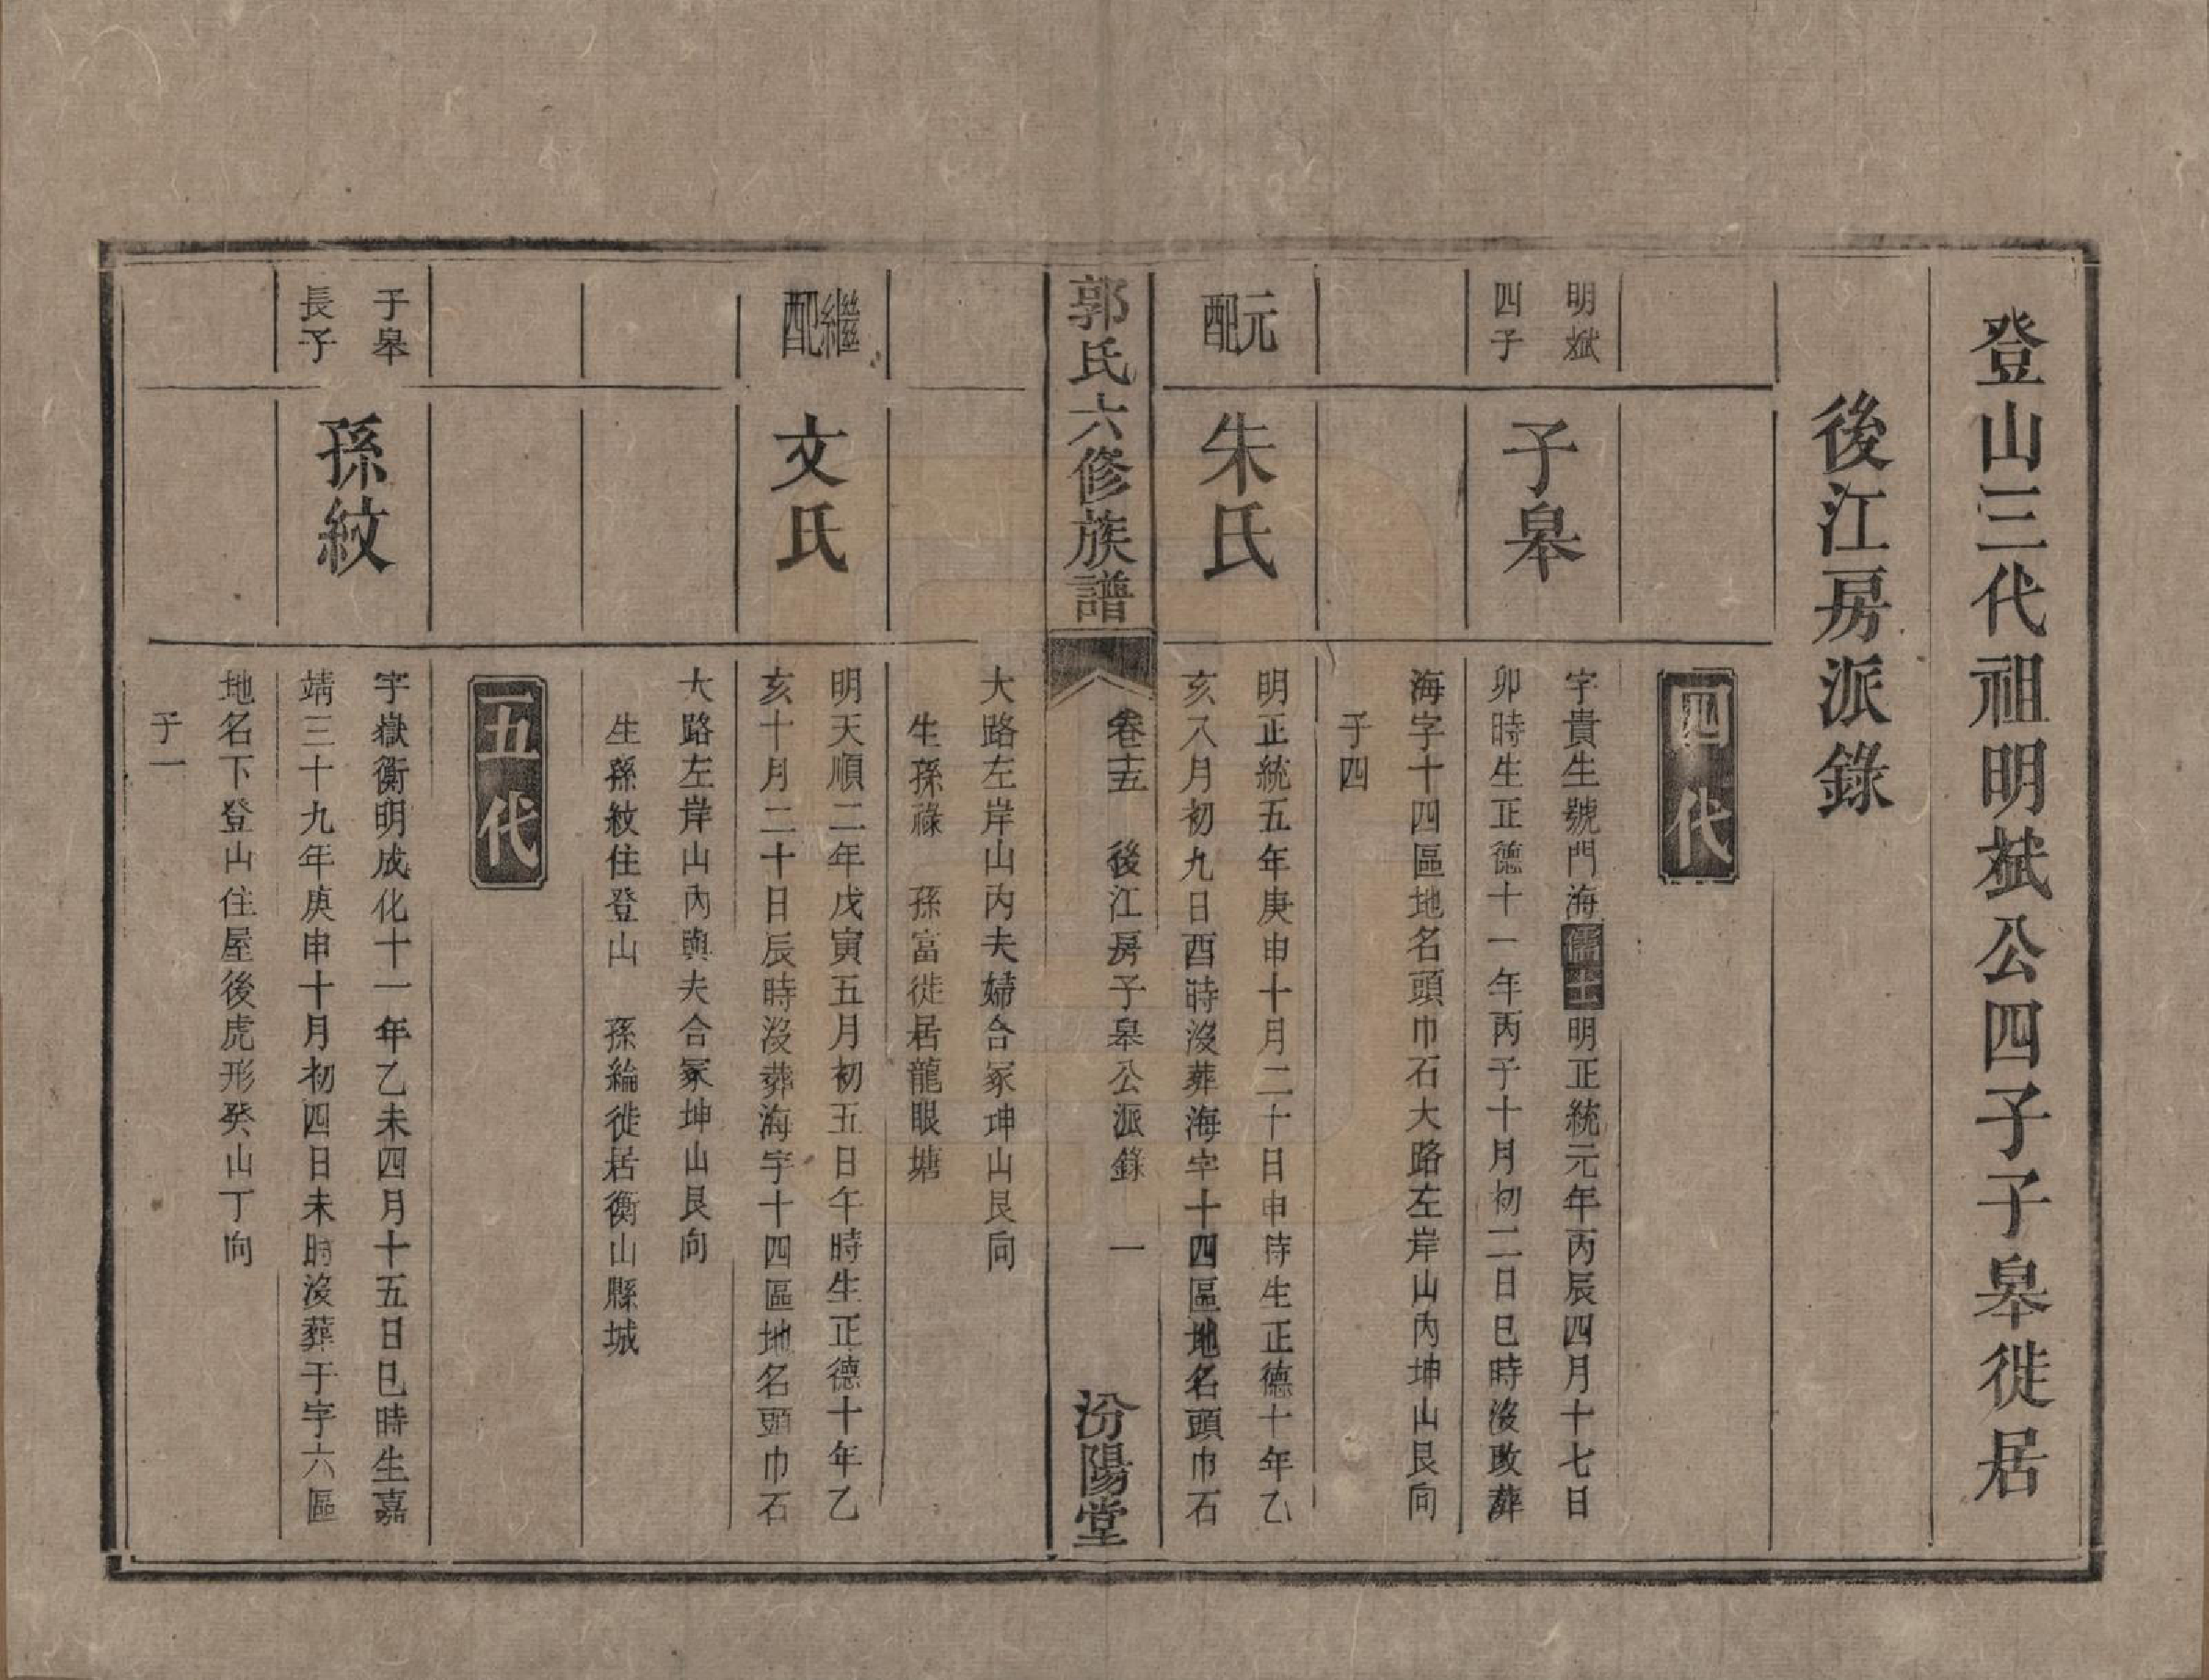 登山三代祖明斌公四子子皋徙居
後江房派錄
四代
明斌
四子
子皋
字貴生號門海儒士明正統元年丙辰四月十七日
卯時生正德十一年丙子十月初二日巳時沒改葬
海字十四區地名頭巾石大路左岸山內坤山艮向
子四
元配
朱氏
明正統五年庚申十月二十日申時生正德十年乙
亥八月初九日酉時沒葬海字十四區地名頭巾石
郭氏六修族譜
卷十五
後江房子皋公派錄
一
汾陽堂
大路左岸山內夫婦合冢坤山艮向
生孫祿 孫富徙居龍眼塘
繼配
文氏
明天順二年戊寅五月初五日午時生正德十年乙
亥十月二十日辰時沒葬海字十四區地名頭巾石
大路左岸山內與夫合冢坤山艮向
生孫紋住登山 孫綸徙居衡山縣城
五代
子皋
長子
孫紋
字嶽衡明成化十一年乙未四月十五日巳時生嘉
靖三十九年庚申十月初四日未時沒葬于字六區
地名下登山住屋後虎形癸山丁向
子一